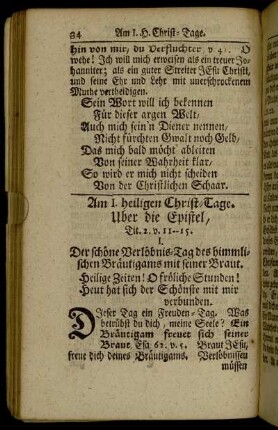 84 Am I. H. Christ-Tage.
hin von mir, du Verfluchter. v. 41. O
wehe! Ich will mich erweisen als ein treuer Jo-
hanniter; als ein guter Streiter JEsu Christi,
und seine Ehr und Lehr mit unerschrockenem
Muthe vertheidigen.
Sein Wort will ich bekennen
Für dieser argen Welt,
Auch mich sein'n Diener nennen,
Nicht fürchten Gwalt noch Geld,
Das mich bald möcht' ableiten
Von seiner Wahrheit klar,
So wird er mich nicht scheiden
Von der Christlichen Schaar.
Am I. heiligen Christ-Tage.
Uber die Epistel,
Tit. 2. v. 11--15.
I.
Der schöne Verlöbnis-Tag des himmli-
schen Bräutigams mit seiner Braut.
Heilige Zeiten! O fröliche Stunden!
Heut hat sich der Schönste mit mir
verbunden.
DJeser Tag ein Freuden-Tag. Was
betrübst du dich, meine Seele? Ein
Bräutigam freuet sich seiner
Braut, Esa. 62. v. 5. Braut JEsu,
freue dich deines Bräutigams. Verlöbnissen
müssen